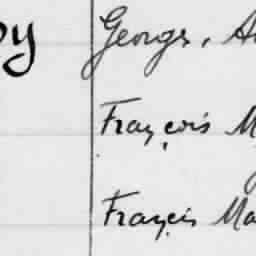 George, A
François M
Francis Ma